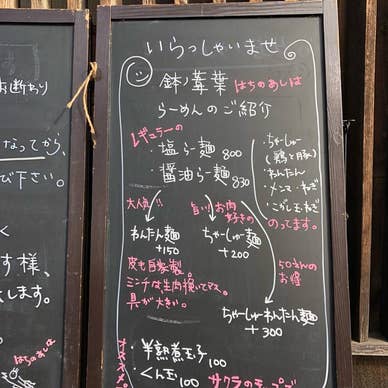 お断わり
なってから、
び下さい。
く
す様、
します。
はちのあしは
いらっしゃいませ
鉢ノ葦葉 はちのあしは
らーめんのご紹介
レギュラーの
・塩らー麺 800
・醤油らー麺 830
・ちゃーしゅー
(鶏と豚)
・わんたん
・メンマ・ねぎ
・こがし玉ねぎ
のってます。
大人気!!
わんたん麺
+150
皮も自家製。
ミンチな生肉挽いてマス。
具が大きい。
旨い!お肉
好きの
ちゃーしゅー麺
+200
50えんの
お得
ちゃーしゅーわんたん麺
+300
オススメ
・半熟煮玉子 100
・くん玉 100
サクラのチップ